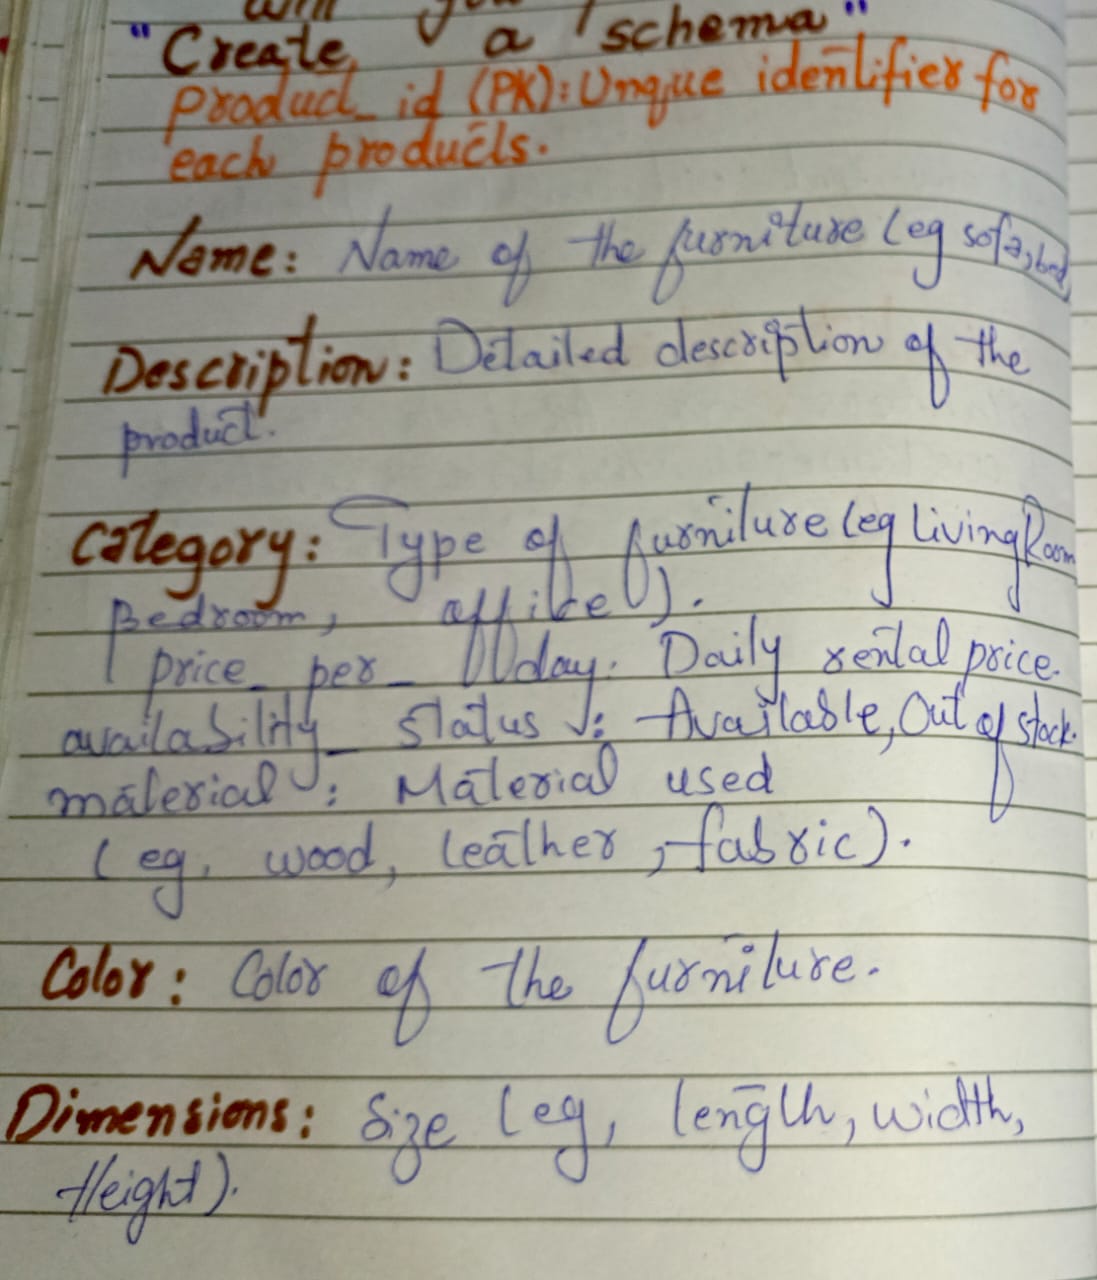 will you
"Create a schema"
product_id (PK): Unqiue identifier for
each products.
Name: Name of the furniture (eg sofa, bed,
Description: Detailed description of the
product.
Category: Type of furniture (eg Living Room
Bedroom, office).
price_per_day: Daily rental price.
availability_status: Available, Out of stock.
material: Material used
(eg, wood, leather, fabric).
Color: Color of the furniture.
Dimensions: Size (eg, length, width,
Height).